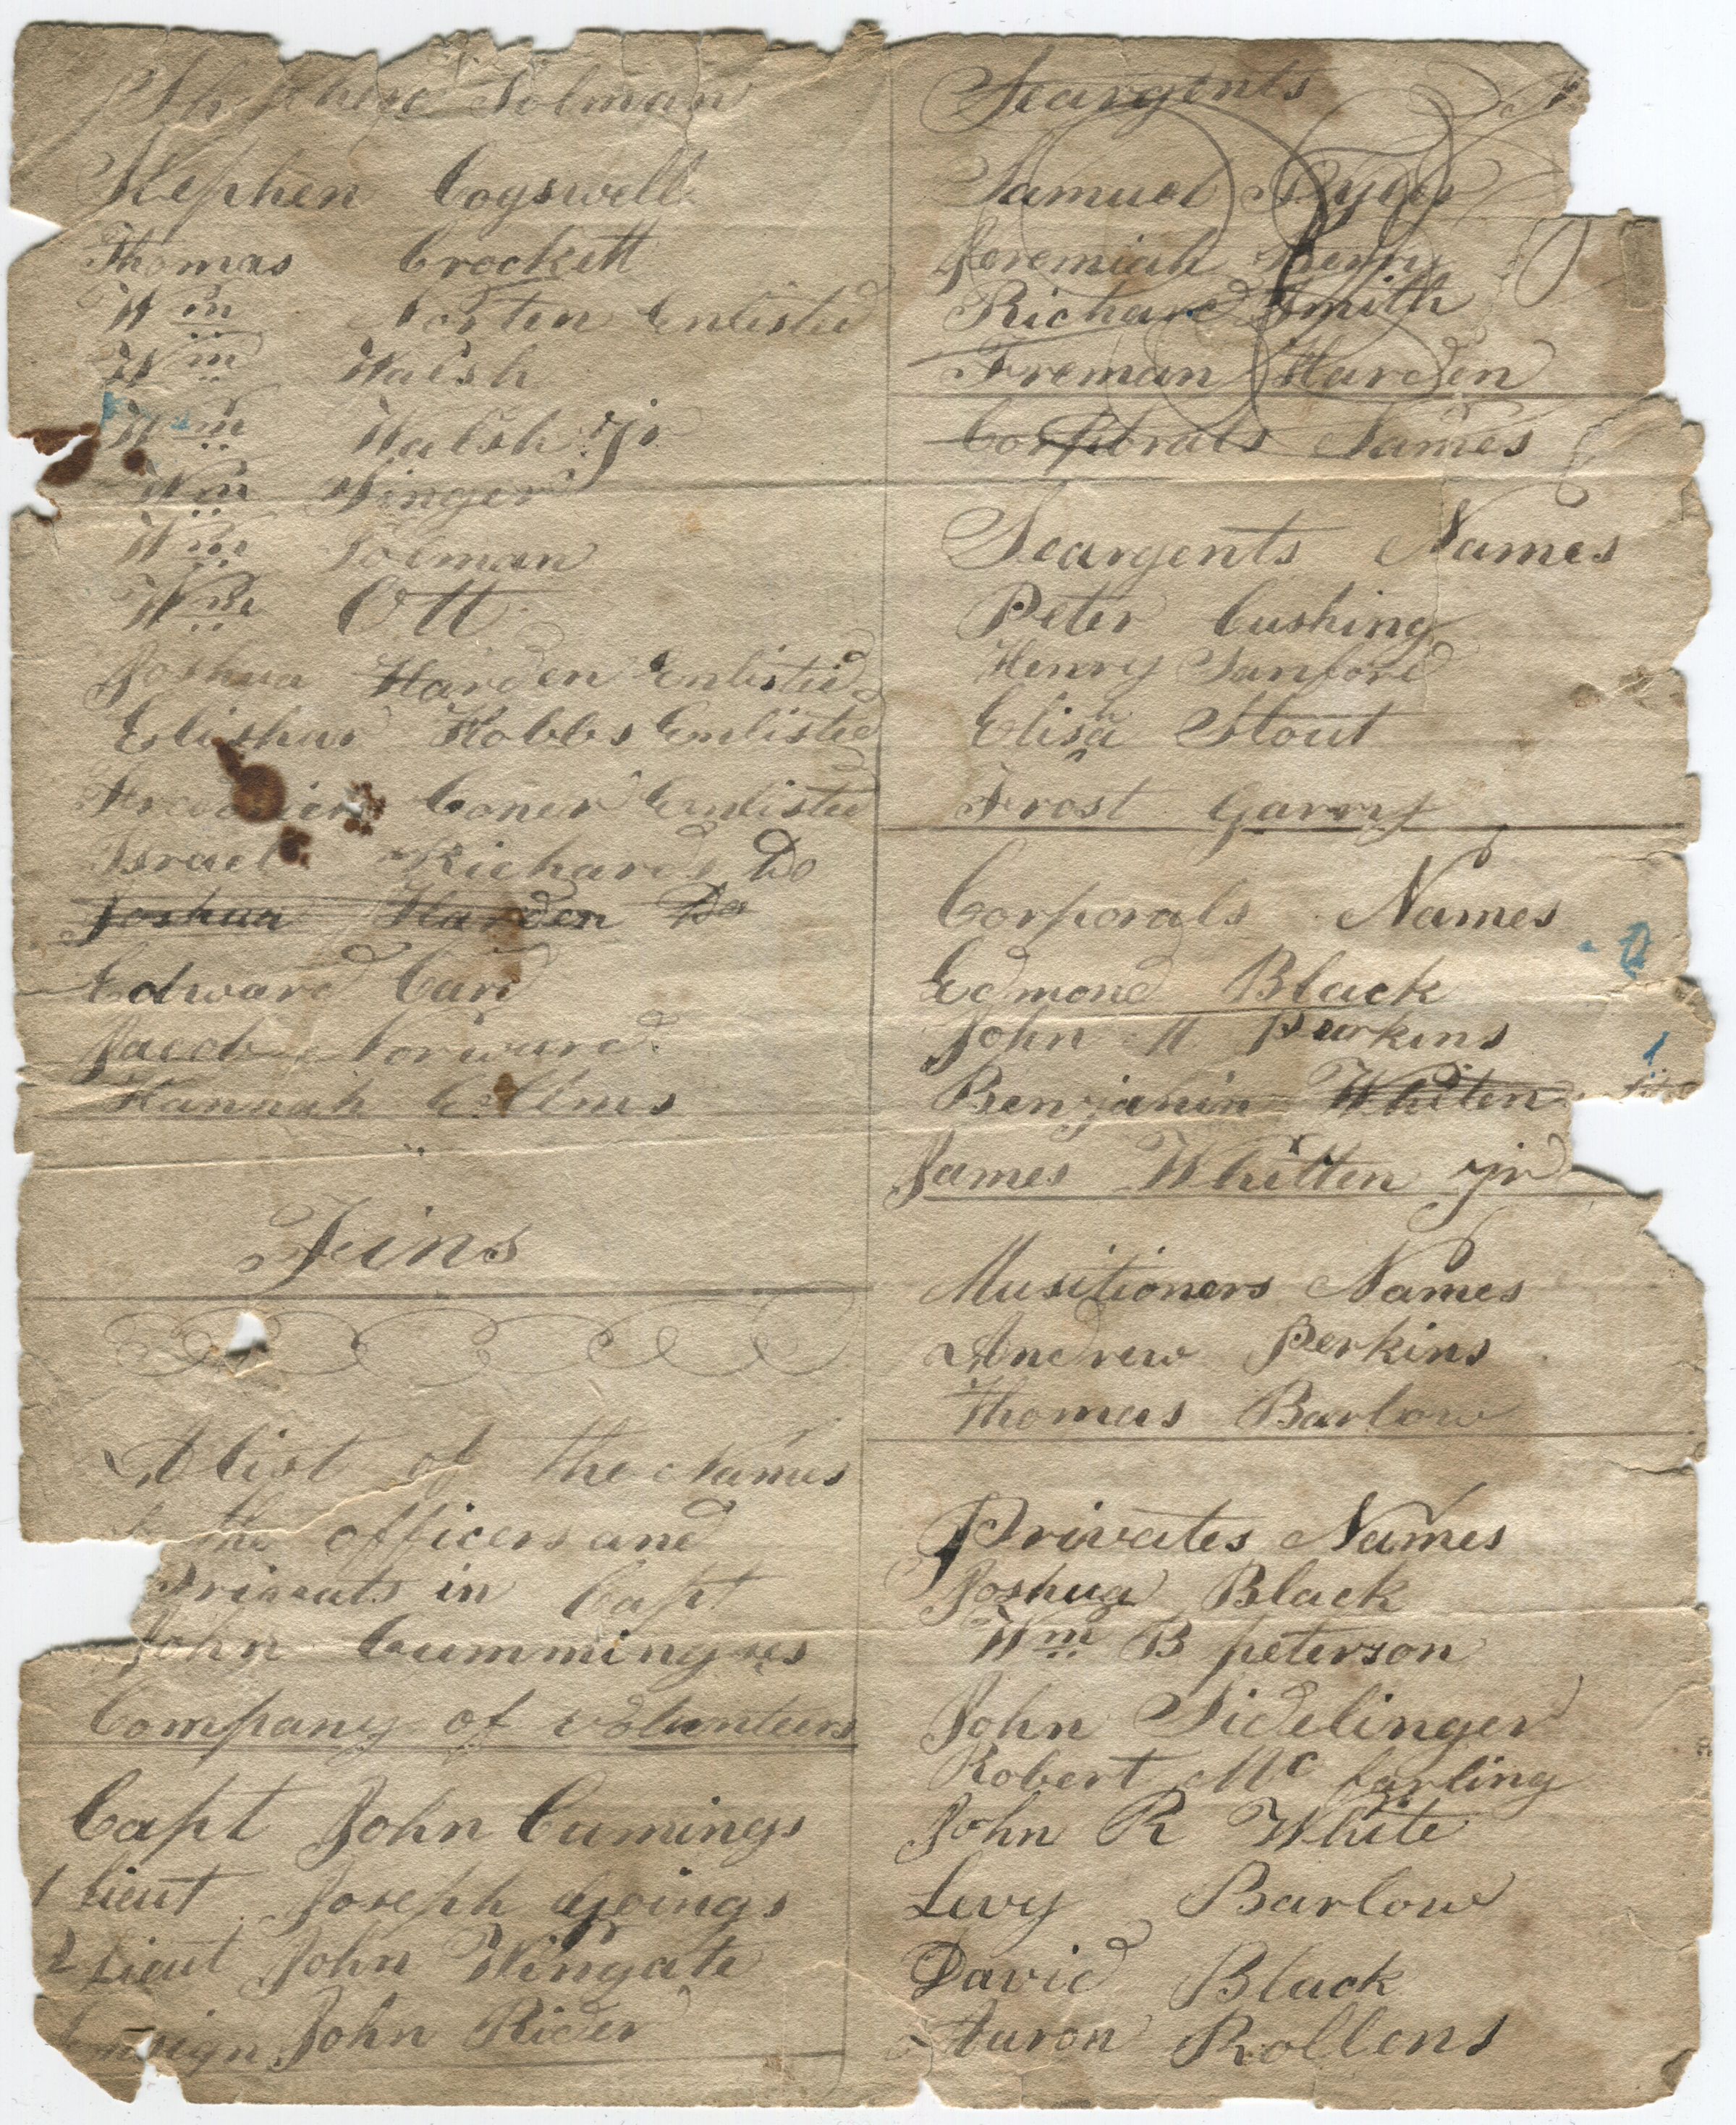 Tolman
Stephen Cogswell
Thomas Crockett
Wm Norten Enlisted
Wm Walsh
Wm Walsh jr
Wm Singer
Wm Tolman
Wm Ott
Joshua Harden Enlisted
Elishua Hobbs Enlisted
Coner Enlisted
Israel Richards Do
Joshua Harden Do
Edward Card
Jacob Norward
Hannah Ellms
Feins
A list of the Names
the officers and
Priveats in Capt
John Cummingses
Company of volunteers
Capt John Cumings
1 Lieut Joseph Goings
2 Lieut John Wingate
Ensign John Rider
Seargents
Samuel Ryder
Jeremiah Berry
Richard Smith
Freman Harden
Corporals Names
Seargents Names
Peter Cushing
Henry Sanford
Elisa Stout
Frost Garry
Corporals Names
Edmond Black
John M Perkins
Benjamin Whiten
James Whitten jr
Musitioners Names
Andrew Perkins
Thomas Barlow
Privates Names
Joshua Black
Wm B peterson
John Sidelinger
Robert Mc farling
John R White
Levy Barlow
David Black
Aaron Rollens